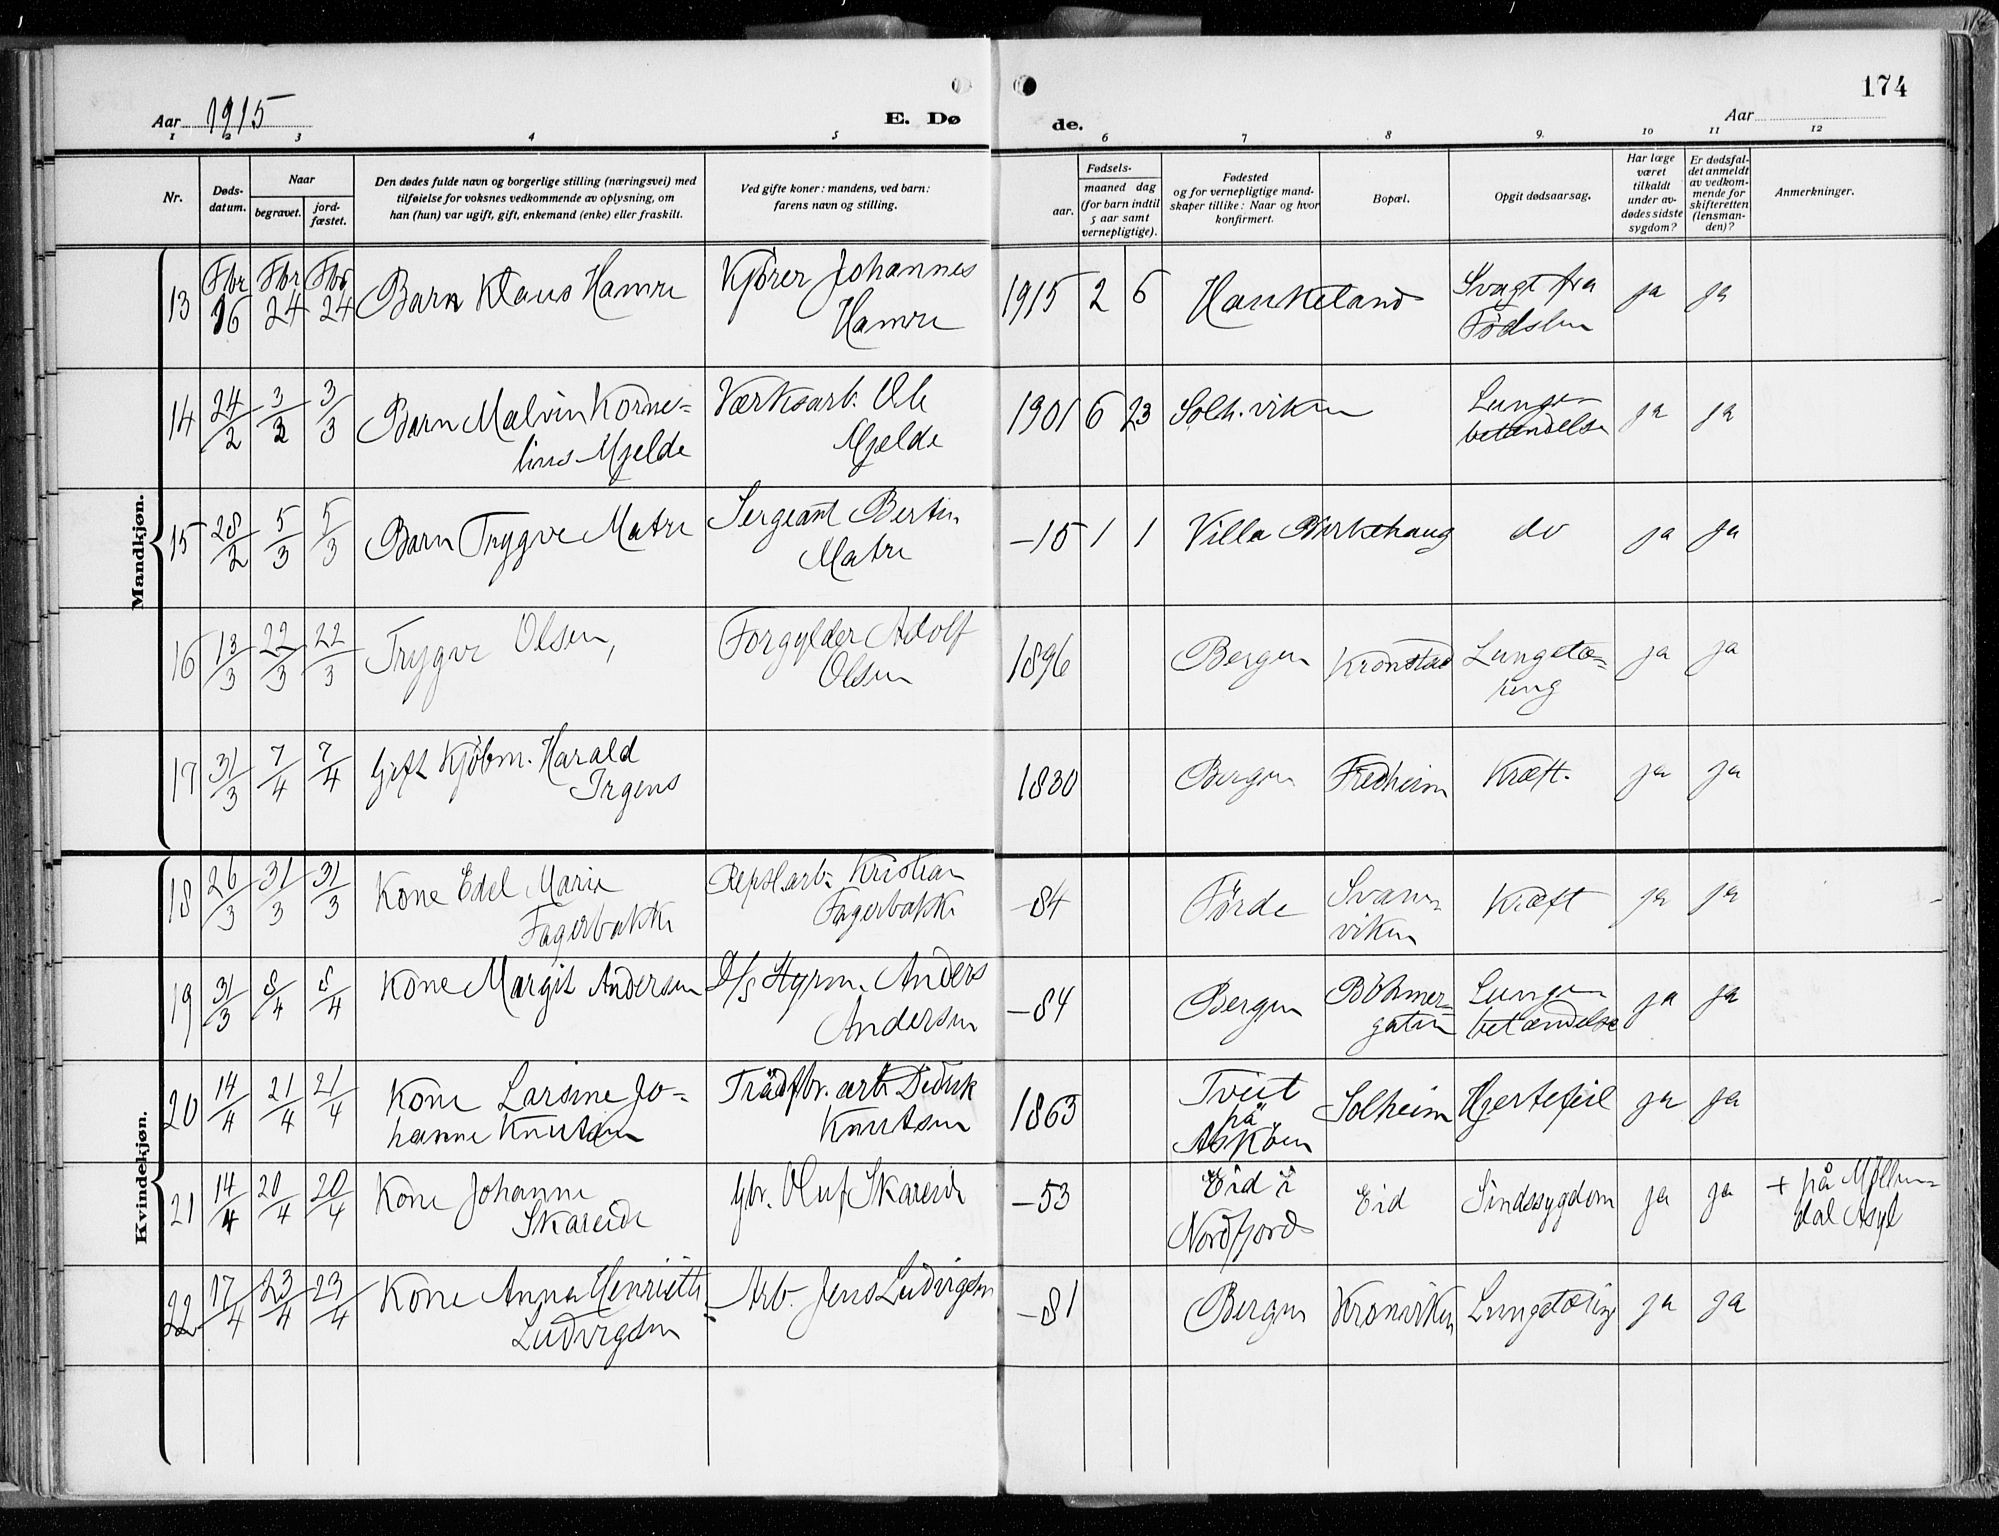 174
Aar 1915
E. Dø
de.
Aar
1 2 3 4 5 6 7 8 9. 10 11 12
Nr.
Døds-
datum.
Naar
begravet.
jord-
fæstet.
Den dødes fulde navn og borgerlige stilling (næringsvei) med
tilføielse for voksnes vedkommende av oplysning, om
han (hun) var ugift, gift, enkemand (enke) eller fraskilt.
Ved gifte koner: mandens, ved barn:
farens navn og stilling.
Fødsels-
aar.
maaned dag
(for barn indtil
5 aar samt
vernepligtige).
Fødested
og for vernepligtige mand-
skaper tillike: Naar og hvor
konfirmert.
Bopæl.
Opgit dødsaarsag.
Har læge
været
tilkaldt
under av-
dødes sidste
sygdom?
Er dødsfal-
det anmeldt
av vedkom-
mende for
skifteretten
(lensman-
den)?
Anmerkninger.
Mandkjøn.
13 Fbr 16 Fbr 24 Fbr 24 Barn Klaus Hamre Kjörer Johannes
Hamre 1915 2 6 Haukeland Svagt fra
Födslen ja ja
14 24/2 3/3 3/3 Barn Malvin Korne-
lius Mjelde Værksarb. Ole
Mjelde 1901 6 23 Solh.viken Lunge-
betændelse ja ja
15 28/2 5/3 5/3 Barn Trygve Matre Sergeant Bertin
Matre -15 1 1 Villa Birkehaug do ja ja
16 13/3 22/3 22/3 Trygve Olsen, Forgylder Adolf
Olsen 1896 Bergen Kronstad Lungetæ-
ring ja ja
17 31/3 7/4 7/4 Gift Kjöbm. Harald
Irgens 1830 Bergen Fredheim Kræft. ja ja
Kvindekjøn.
18 26/3 31/3 31/3 Kone Edel Marie
Fagerbakke Repsl.arb. Kristian
Fagerbakke -84 Förde Svane-
viken Kræft ja ja
19 31/3 8/4 8/4 Kone Margit Andersen D/s Styrm. Anders
Andersen -84 Bergen Böhmer-
gaten Lunge-
betændelse ja ja
20 14/4 21/4 21/4 Kone Larsine Jo-
hanne Knutsen Trådfbr. arb. Didrik
Knutsen 1863 Tveit
på
Asköen Solheim Hjertefeil ja ja
21 14/4 20/4 20/4 Kone Johanne
Skareide Gbr. Oluf Skareide -53 Eid i
Nordfjord Eid Sindssygdom ja ja + på Möllen-
dal Asyl
22 17/4 23/4 23/4 Kone Anna Henriette
Ludvigsen Arb. Jens Ludvigsen -81 Bergen Kronviken Lungetæring ja ja